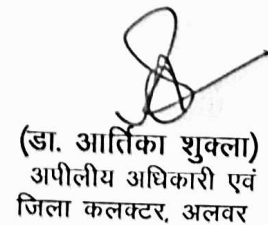 (डा. आर्तिका शुक्ला)
अपीलीय अधिकारी एवं
जिला कलक्टर, अलवर